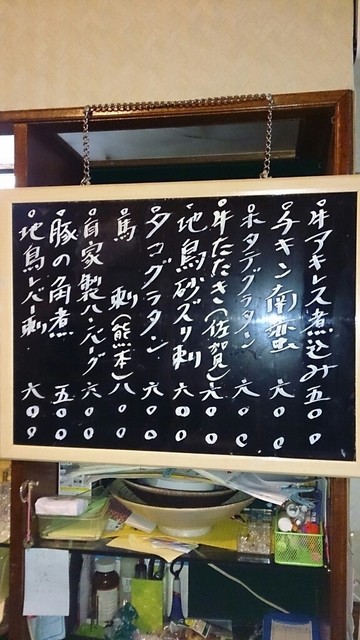 牛アキレス煮込み 五〇〇
チキン南蛮 六〇〇
ホタテグラタン 六〇〇
牛たたき(佐賀) 六〇〇
地鳥砂ズリ刺 六〇〇
タコグラタン 六〇〇
馬刺(熊本) 八〇〇
自家製ハンバーグ 六〇〇
豚の角煮 五〇〇
地鳥レバー刺 六〇〇